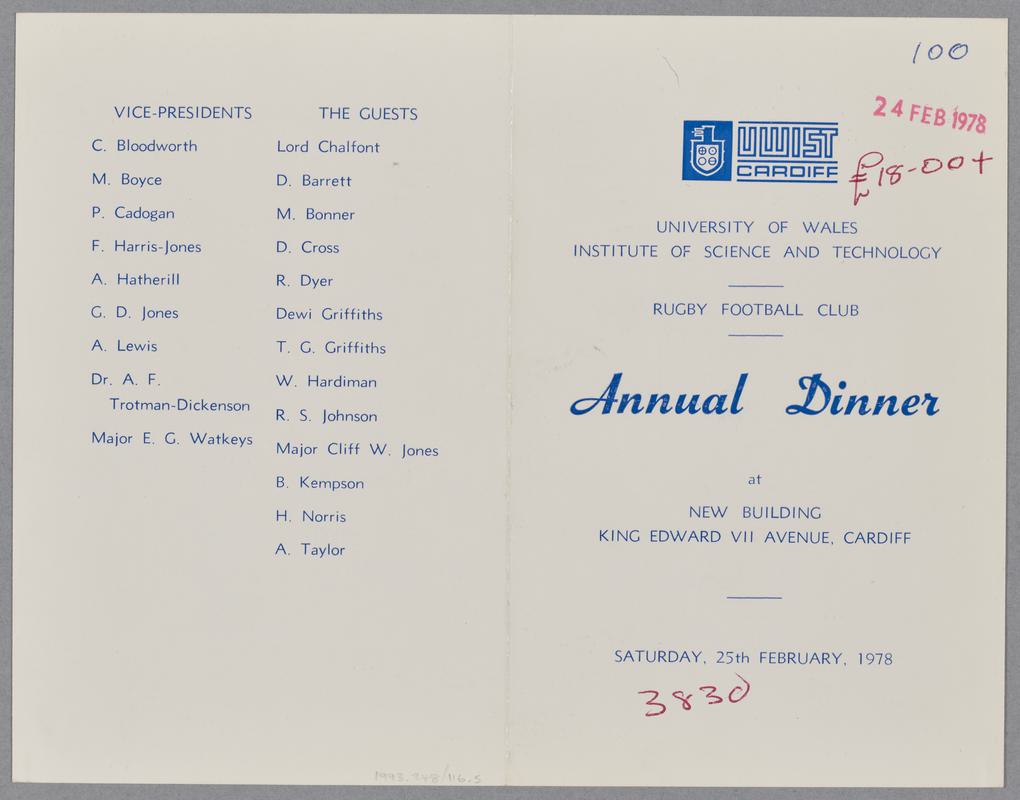 VICE-PRESIDENTS
C. Bloodworth
M. Boyce
P. Cadogan
F. Harris-Jones
A. Hatherill
G. D. Jones
A. Lewis
Dr. A. F.
Trotman-Dickenson
Major E. G. Watkeys
THE GUESTS
Lord Chalfont
D. Barrett
M. Bonner
D. Cross
R. Dyer
Dewi Griffiths
T. G. Griffiths
W. Hardiman
R. S. Johnson
Major Cliff W. Jones
B. Kempson
H. Norris
A. Taylor
1993.248/116.5
100
24 FEB 1978
£18-00+
UWIST
CARDIFF
UNIVERSITY OF WALES
INSTITUTE OF SCIENCE AND TECHNOLOGY
RUGBY FOOTBALL CLUB
Annual Dinner
at
NEW BUILDING
KING EDWARD VII AVENUE, CARDIFF
SATURDAY, 25th FEBRUARY, 1978
3830